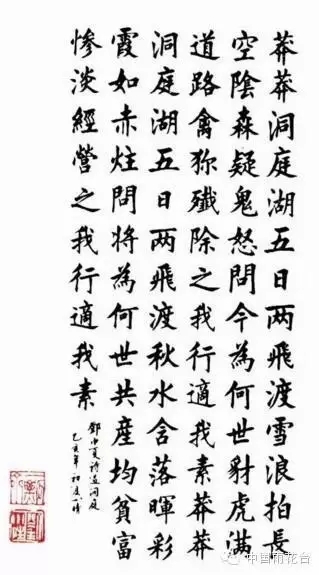 莽莽洞庭湖五日两飛渡雪浪拍長
空陰森疑鬼怒問今為何世豺虎滿
道路禽狝殲除之我行適我素莽莽
洞庭湖五日两飛渡秋水含落暉彩
霞如赤炷問將為何世共産均貧富
惨淡經營之我行適我素
鄧中夏詩過洞庭
乙亥年初夏
中国雨花台